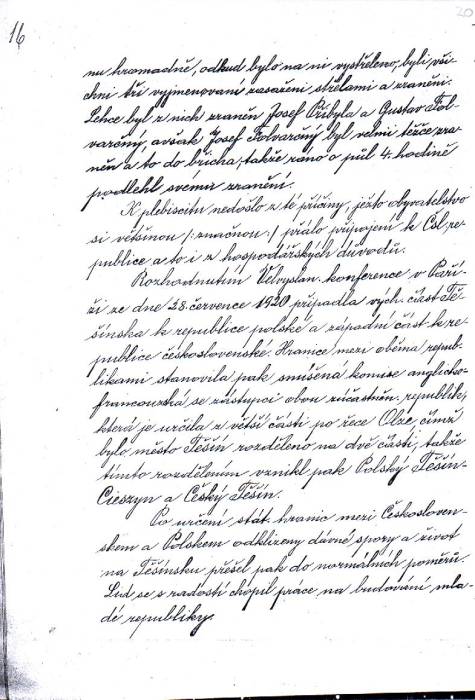 16
20
mu hromadně, odkud bylo na ni vystřeleno, byli vši-
chni tři vyjmenovaní zasaženi střelami a zraněni.
Lehce byl z nich zraněn Josef Přibyla a Gustav Fol-
varčný, avšak Josef Folvarčný byl velmi těžce zra-
něn a to do břicha, takže ráno o půl 4. hodině
podlehl svému zranění.
K plebiscitu nedošlo z té příčiny, ježto obyvatelstvo
si většinou /:značnou:/ přálo připojení k Čsl. re-
publice a to i z hospodářských důvodů.
Rozhodnutím Velvyslan. konference v Paří-
ži ze dne 28. července 1920 připadla vých. část Tě-
šínska k republice polské a západní část k re-
publice československé. Hranice mezi oběma repub-
likami stanovila pak smíšená komise anglicko-
francouzská se zástupci obou zúčastněn. republik,
která je určila z větší části po řece Olze, čímž
bylo město Těšín rozděleno na dvě části, takže
tímto rozdělením vznikl pak Polský Těšín-
Cieszyn a Český Těšín.
Po určení stát. hranic mezi Českosloven-
skem a Polskem odklizeny dávné spory a život
na Těšínsku přešel pak do normálních poměrů.
Lid se s radostí chopil práce na budování mla-
dé republiky.